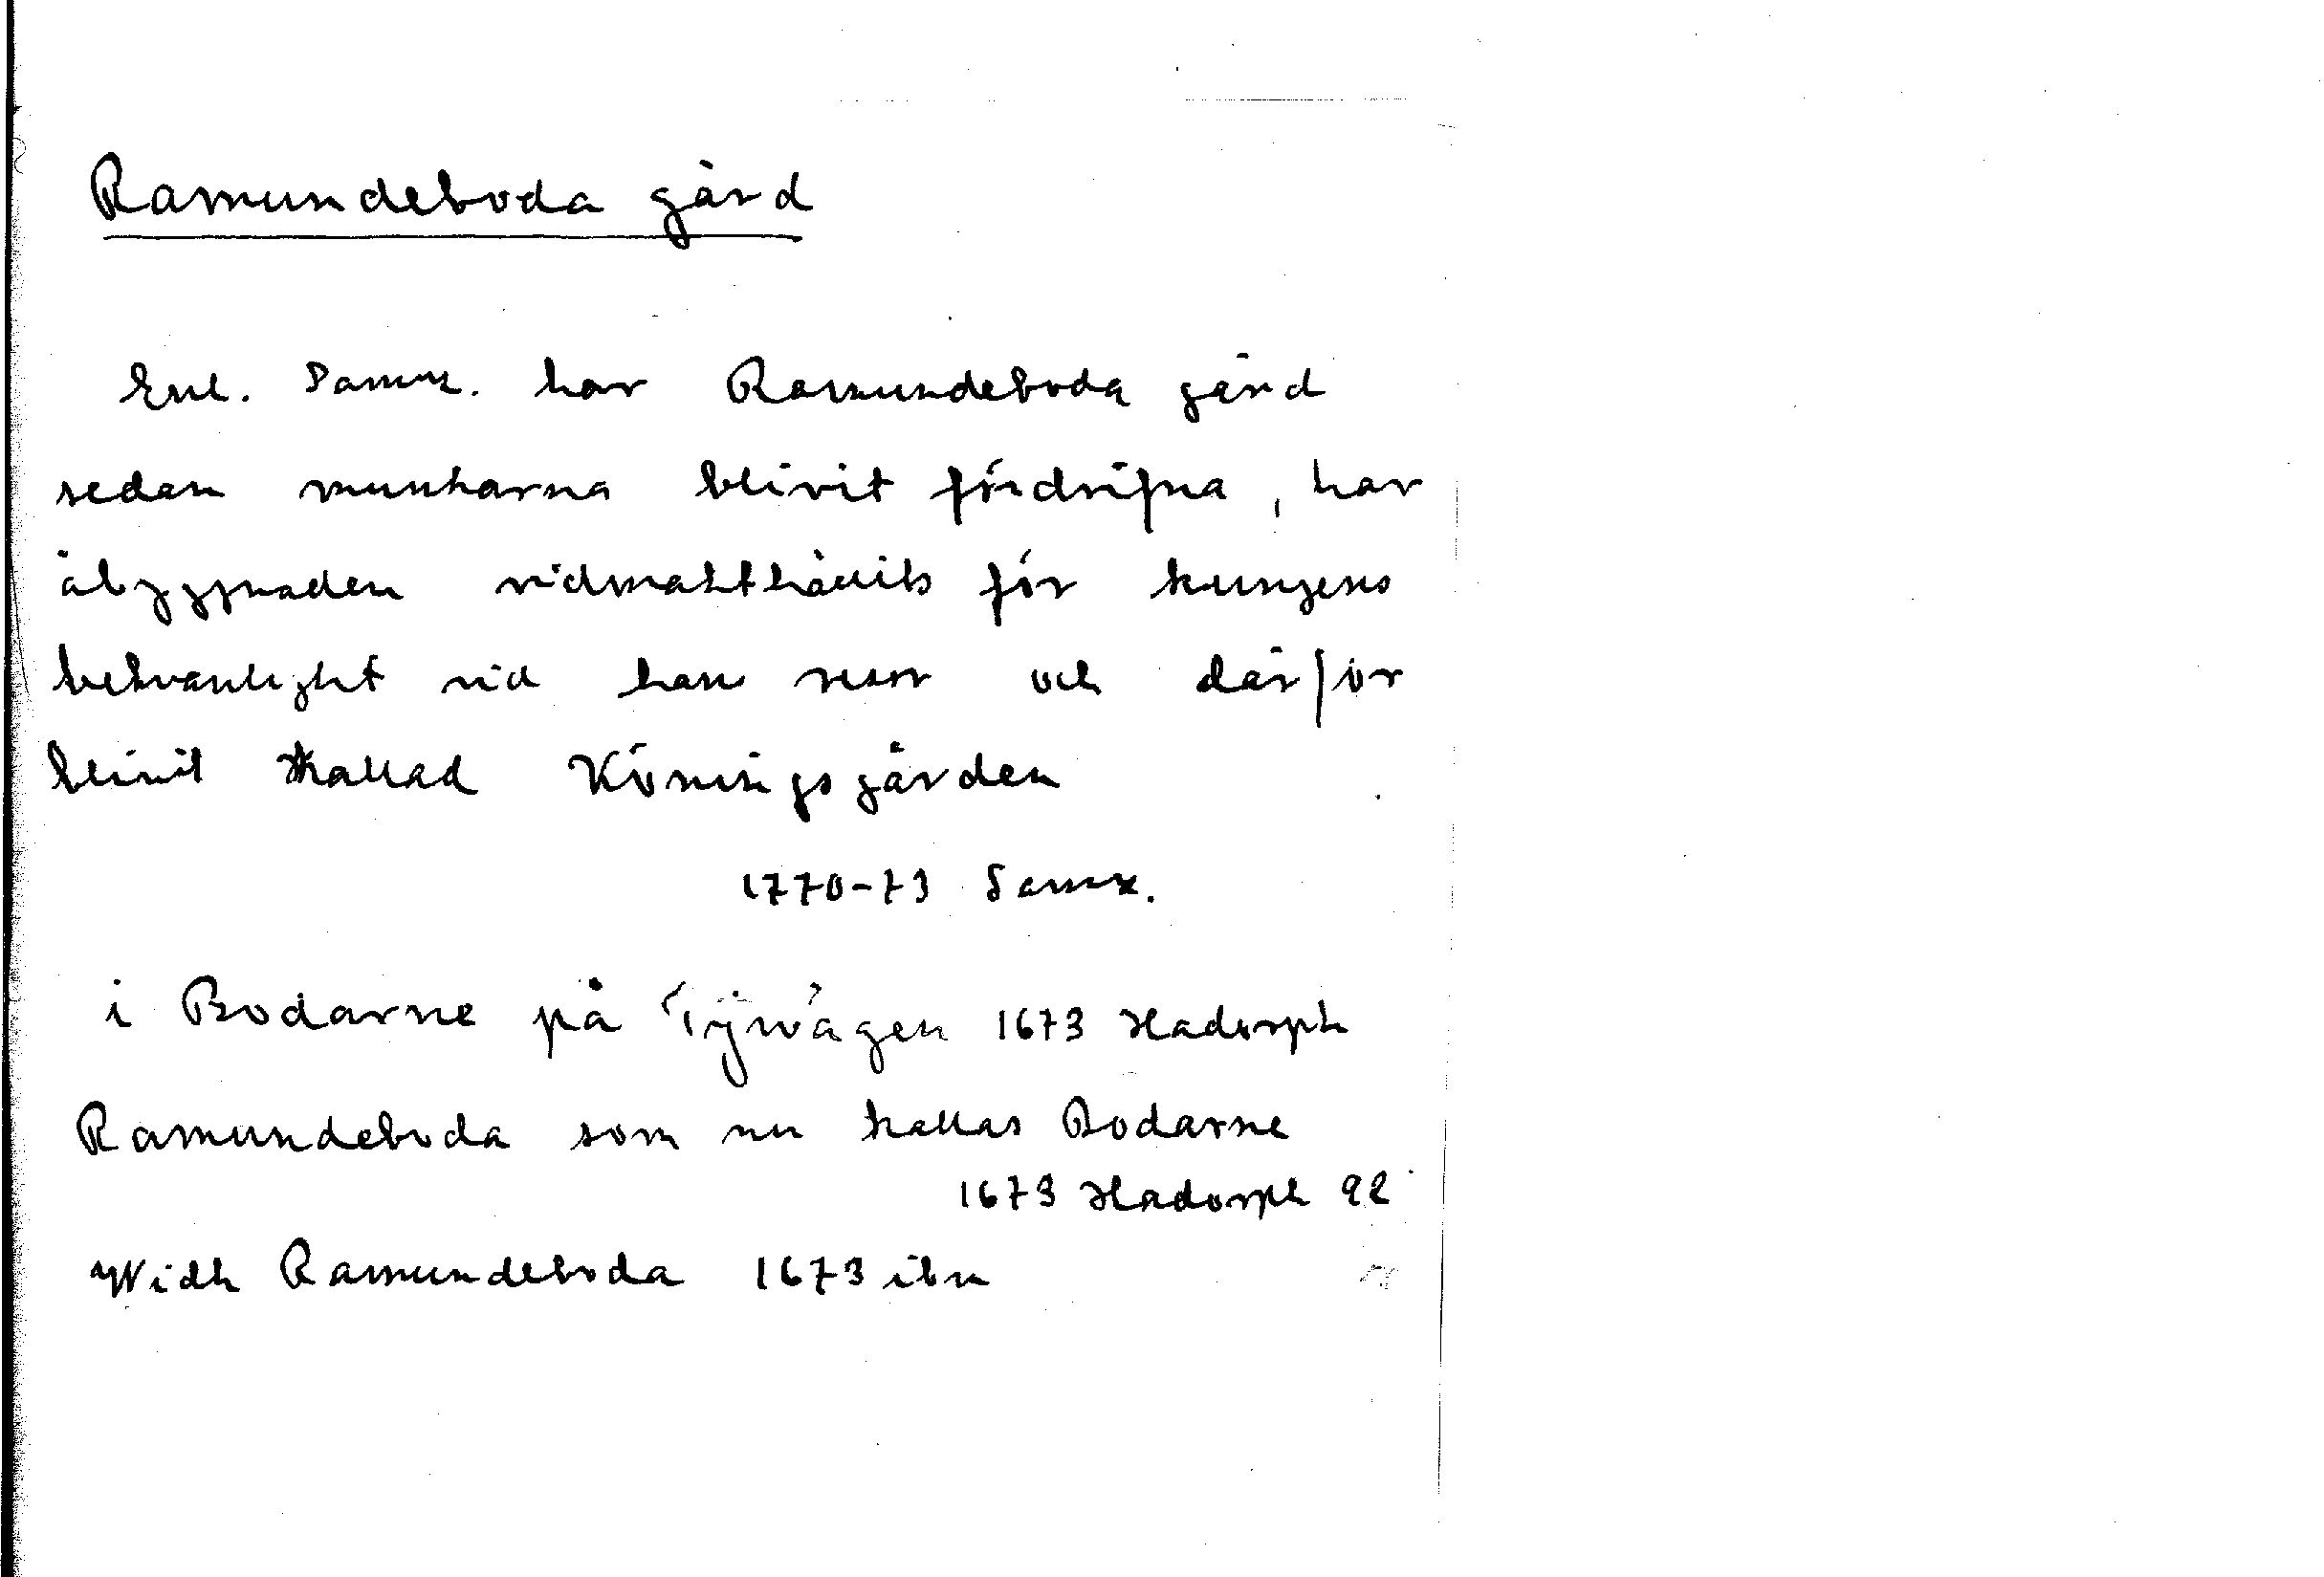 Ramundeboda gård
Enl. Samz. har Ramundeboda gård
sedan munkarna blivit fördrifna, har
åbyggnaden vidmakthållits för kungens
bekvämlight vid hans resor och därför
blivit kallad Konungsgården
1770-73 Samz.
i Bodarne på Tÿwägen 1673 Hadorph
Ramundeboda som nu kallas Bodarne
1673 Hadorph 92
Widh Ramundeboda 1673 ibm